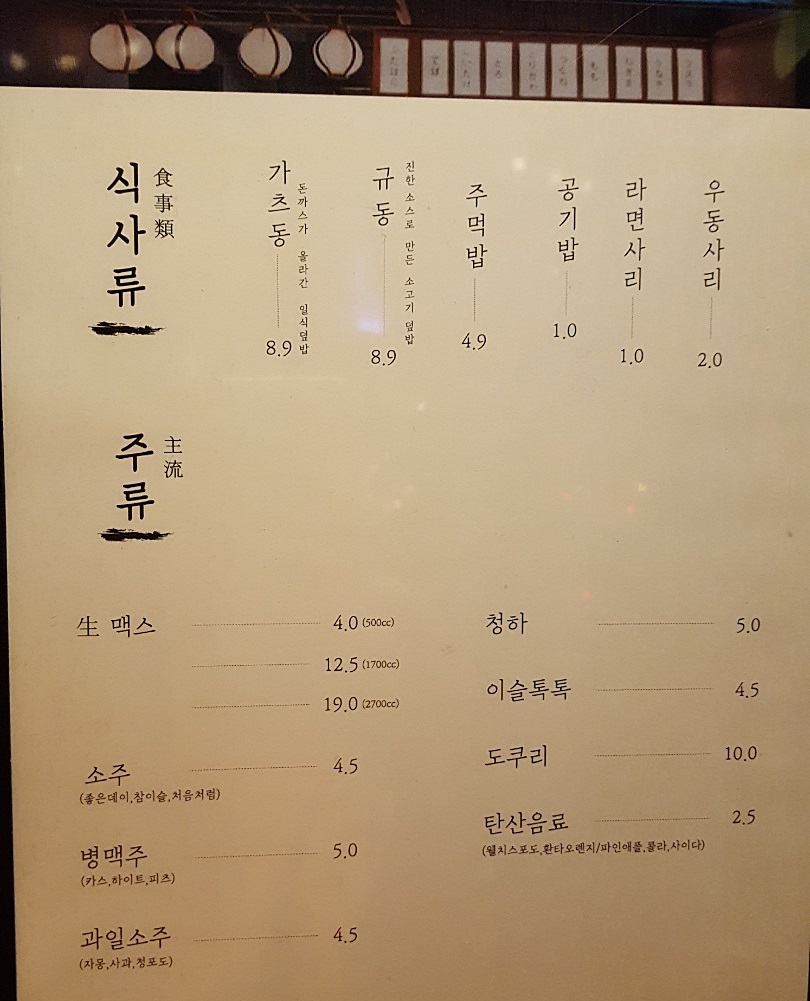 식사류
食事類
가츠동 8.9
돈까스가 올라간 일식덮밥
규동 8.9
진한 소스로 만든 소고기 덮밥
주먹밥 4.9
공기밥 1.0
라면사리 1.0
우동사리 2.0
주류
主流
生 맥스 4.0 (500cc)
12.5 (1700cc)
19.0 (2700cc)
소주 4.5
(좋은데이,참이슬,처음처럼)
병맥주 5.0
(카스,하이트,피츠)
과일소주 4.5
(자몽,사과,청포도)
청하 5.0
이슬톡톡 4.5
도쿠리 10.0
탄산음료 2.5
(웰치스포도,환타오렌지/파인애플,콜라,사이다)